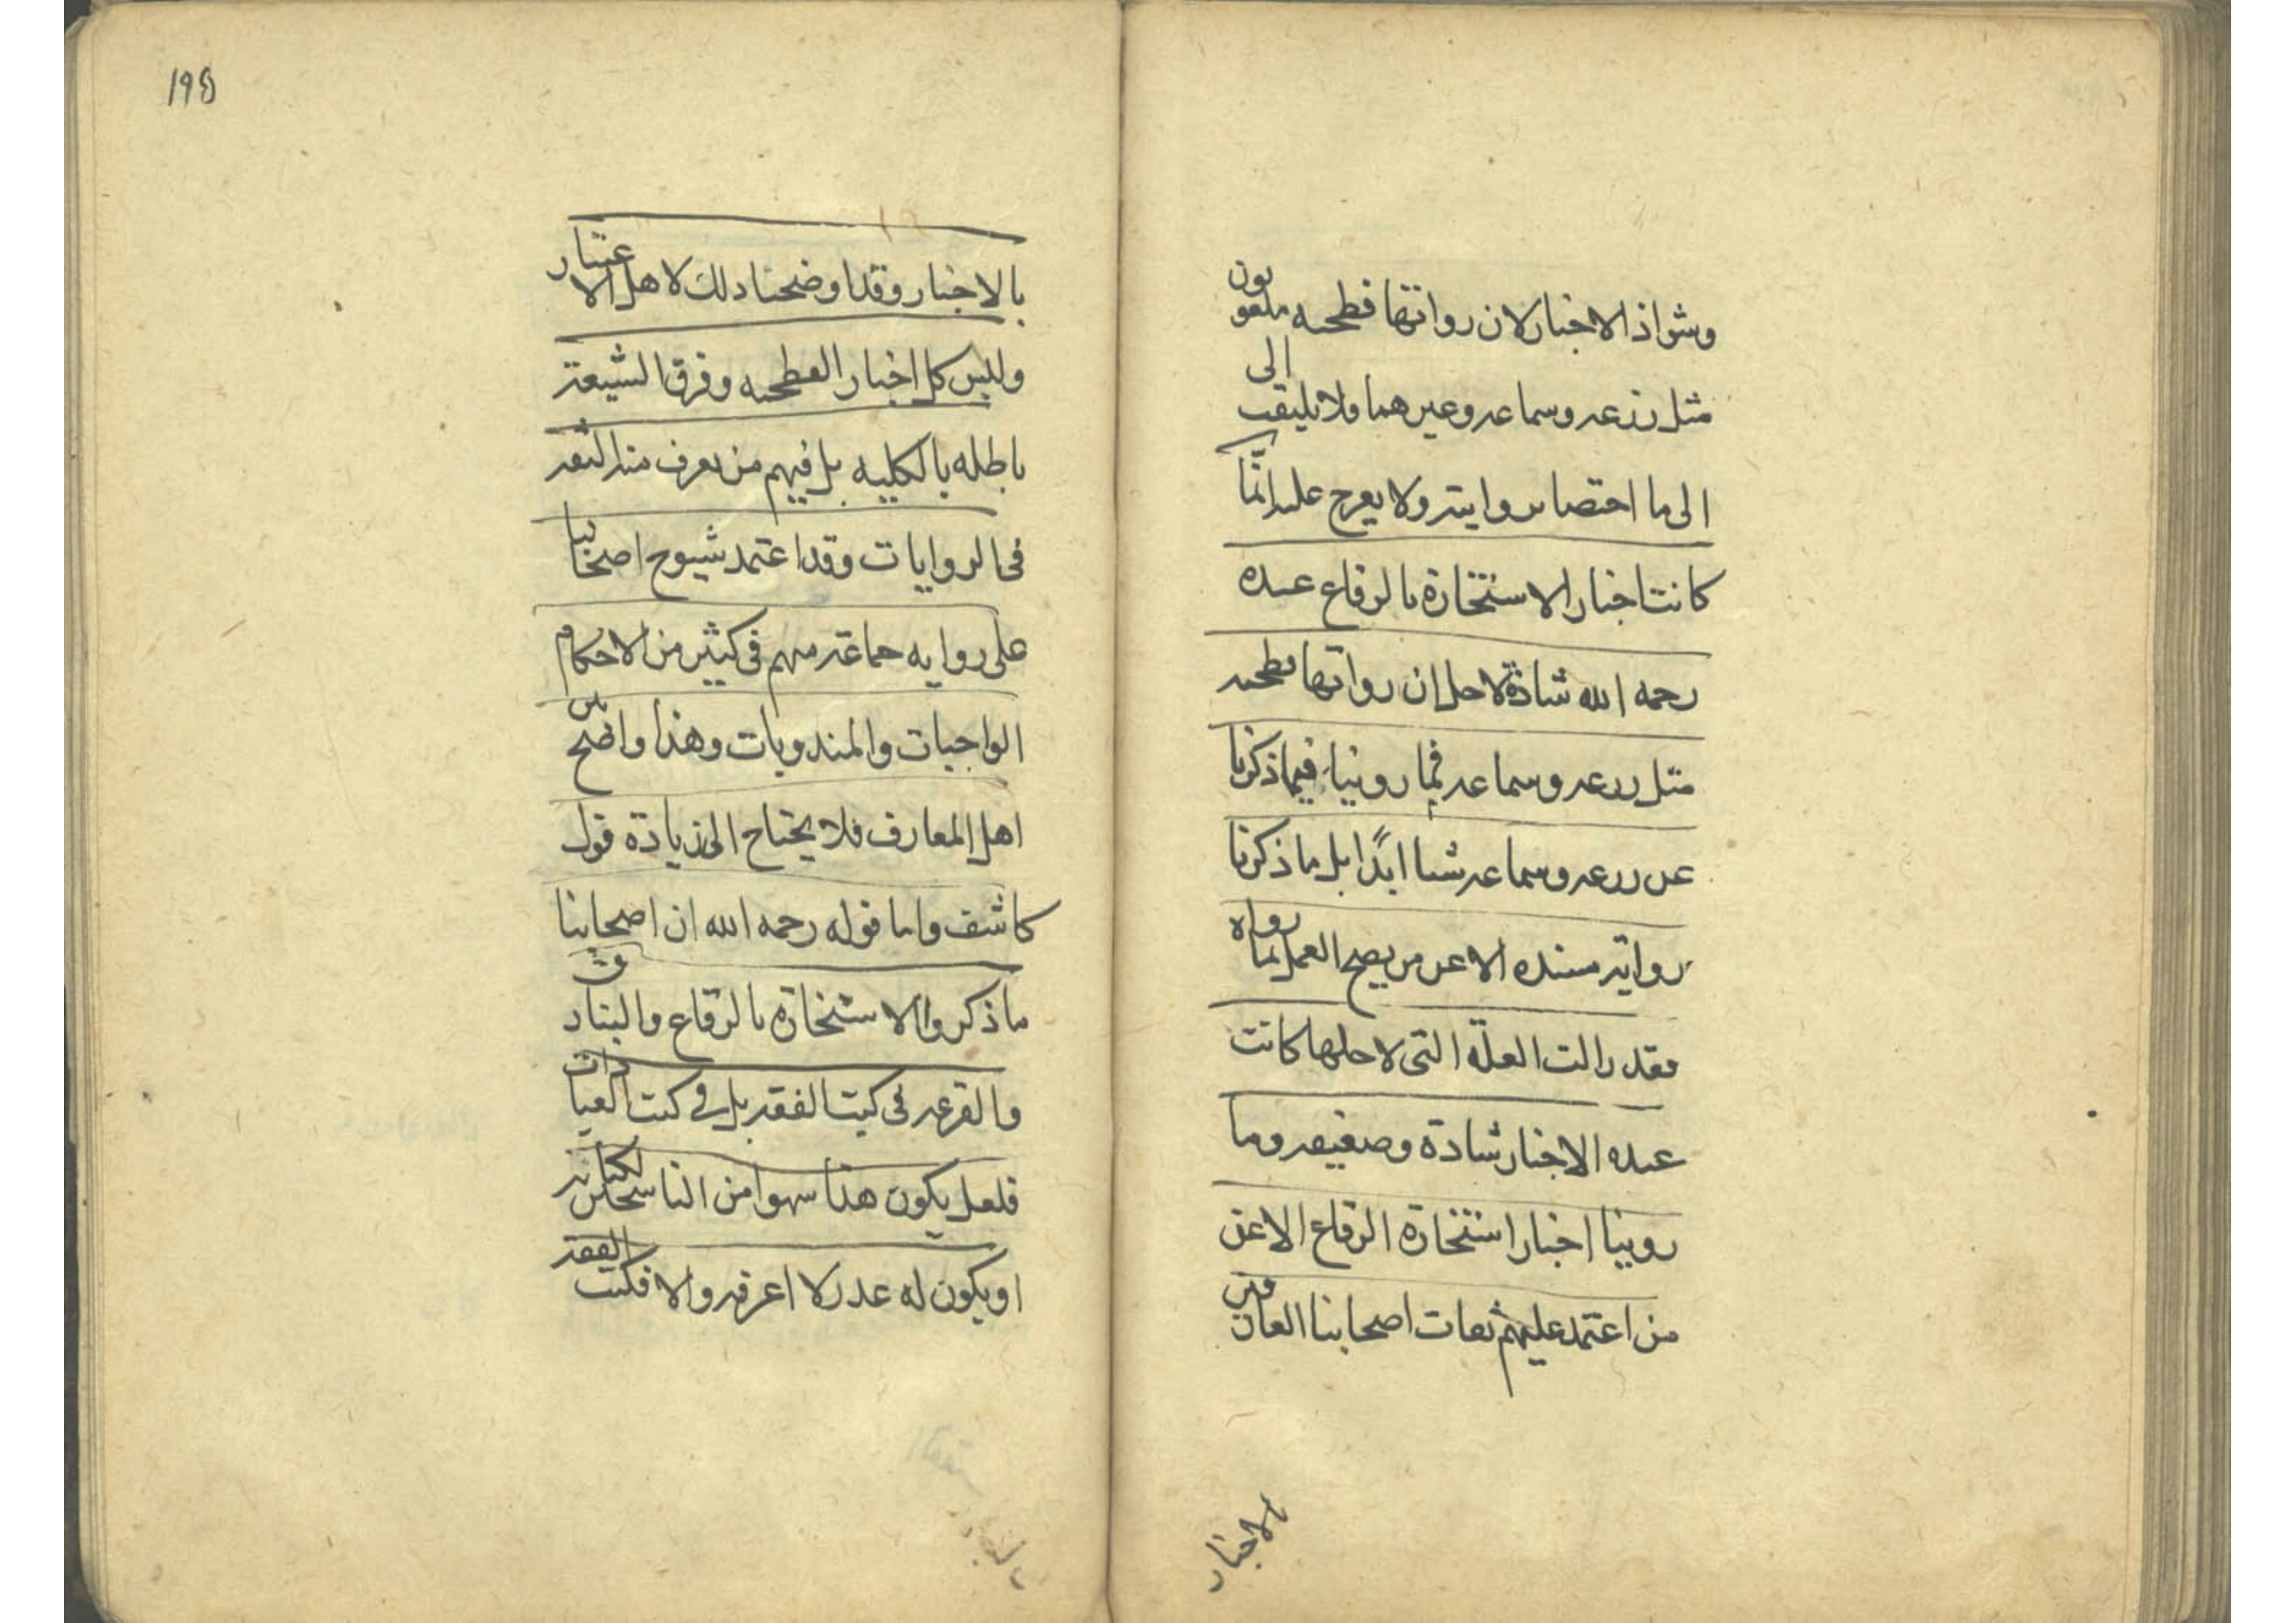 وشواذ الاخبار لان رواتها فطحيه ملعونون
مثل زرعه وسماعه وغيرهما ولا يلتفت الى
الى ما اختصا بروايته ولا يعرج عليه انّما
كانت اخبار الاستخارة بالرقاع عنده
رحمه الله شاذة لاجل ان رواتها فطحيه
مثل زرعه وسماعه فما روينا فيما ذكرنا
عن زرعه وسماعه شيئا ابدًا بل ما ذكرنا
روايته مسنده الا عن من يصح العمل بما رواه
فقد زالت العلّة التى لاجلها كانت
عنده الاخبار شاذة وضعيفه وما
روينا اخبار استخارة الرقاع الا عن
من اعتمد عليهم ثقات اصحابنا العارفين
بالاخبار
۱۹۵
بالاخبار وقد اوضحنا ذلك لاهل الاعتبار
وليس كل اخبار الفطحيه وفرق الشيعة
باطله بالكليه بل فيهم من يعرف منه الثقه
فى الروايات وقد اعتمد شيوخ اصحابنا
على روايه جماعة منهم فى كثير من الاحكام
الواجبات والمندوبات وهذا واضح بين
اهل المعارف فلا يحتاج الى زيادة قول
كاشف واما قوله رحمه الله ان اصحابنا
ما ذكروا الاستخارة بالرقاع والبنادق
والقرعه فى كتب الفقه بل فى كتب العبادات
فلعل يكون هذا سهوا من الناسخين لكتابه
او يكون له عذر لا اعرفه والا فكتب الفقه